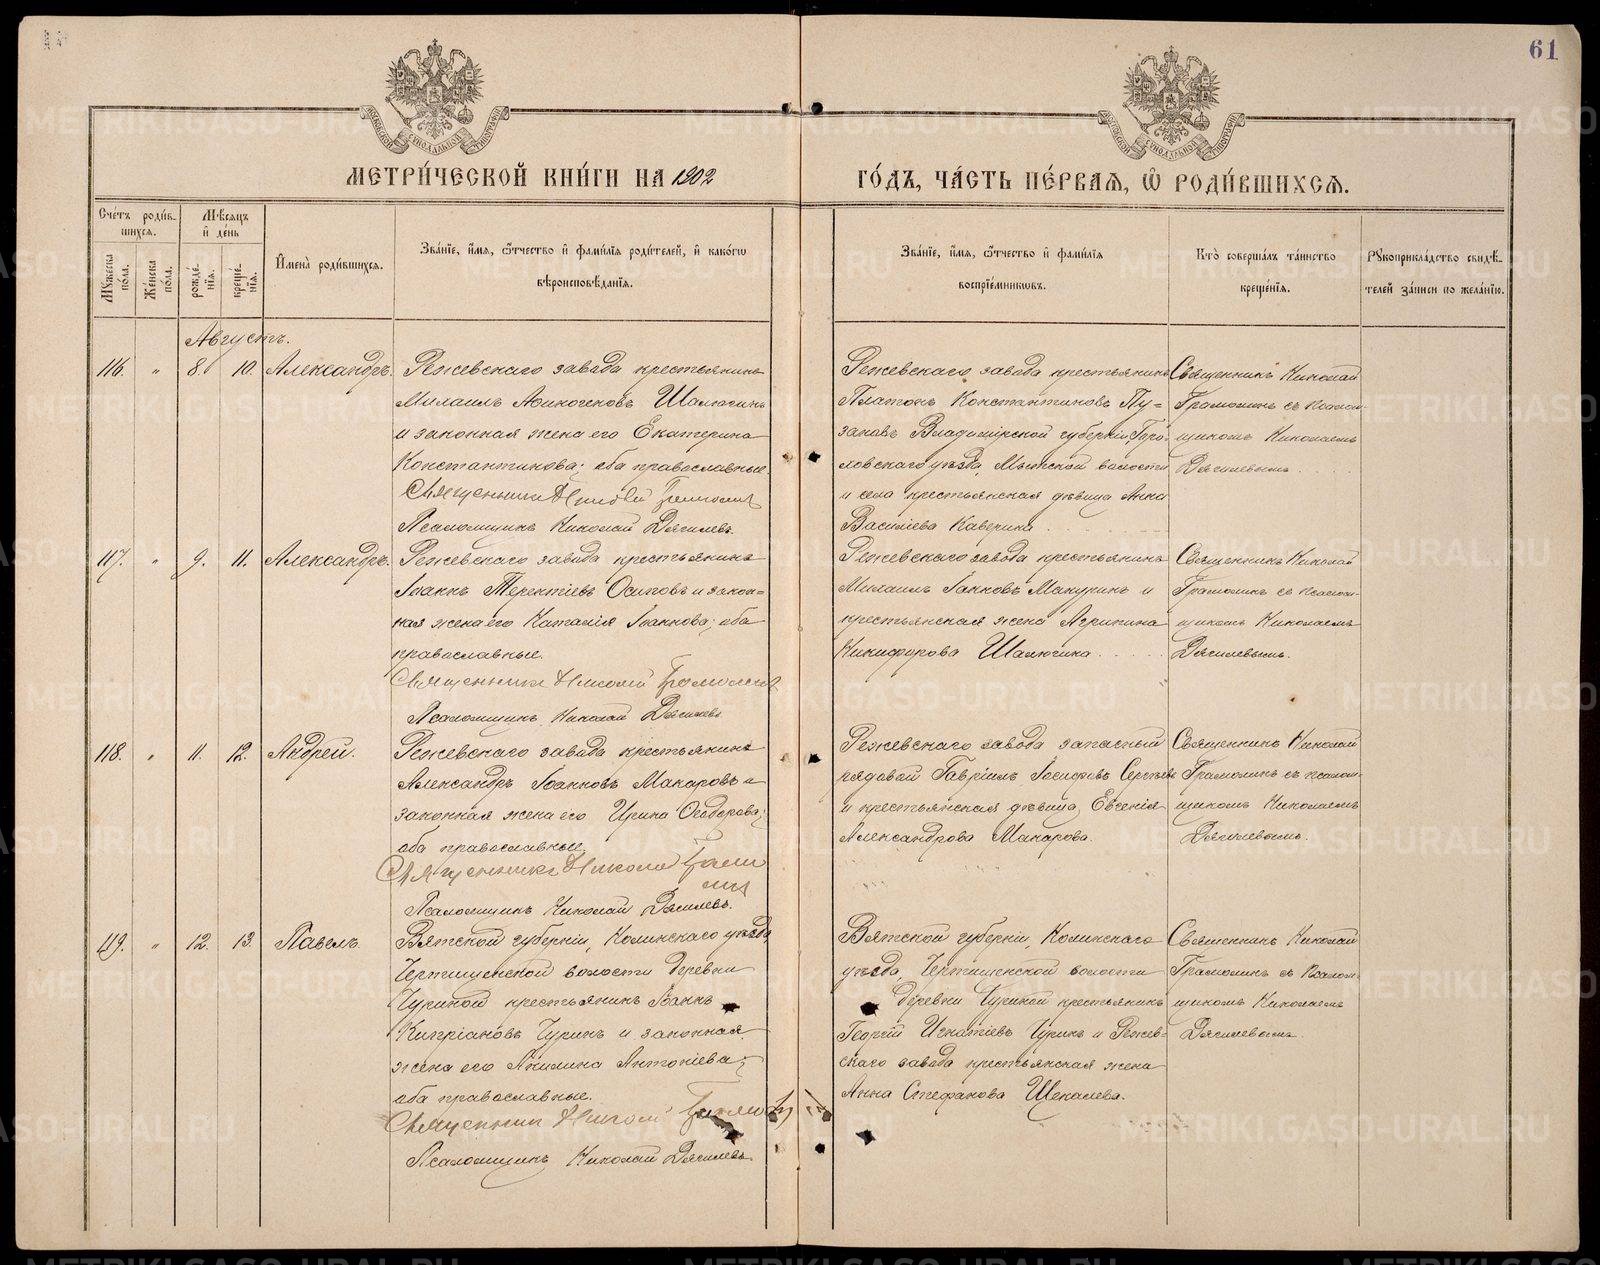 61
МЕТРИ́ЧЕСКОЙ КНИ́ГИ НА 1902
ГО́ДЪ, ЧА́СТЬ ПЕ́РВАЯ, Ѡ РОДИ́ВШИХСЯ.
Сче́тъ роди́в-
шихся.
Мѣ́сяцъ
и де́нь
Мꙋ́жеска по́ла.
Же́нска по́ла.
рожде́-
нїя.
креще́-
нїя.
Имена̀ роди́вшихся.
Зва́нїе, и́мя, ѻ́тчество и фами́лїя роди́телей, и како́гѡ
вѣроисповѣ́данїя.
Зва́нїе, и́мя, ѻ́тчество и фами́лїя
воспрїе́мниковъ.
Кто̀ соверша́лъ та́инство
креще́нїя.
Рꙋкоприкла́дство свидѣ́-
телей за́писи по жела́нїю.
Августъ.
116. " 8. 10. Александръ.
Режевскаго завода крестьянинъ
Михаилъ Аѳиногеновъ Шалюгинъ
и законная жена его Екатерина
Константинова; оба православные.
Священникъ Николай Грамолинъ
Псаломщикъ Николай Дягилевъ.
Режевскаго завода крестьянинъ
Платонъ Константиновъ Пу-
зановъ Владимірской губерніи, Горо-
ховскаго уѣзда, Мытской волости
и села крестьянская дѣвица Анна
Василіева Каверина.
Священникъ Николай
Грамолинъ съ псалом-
щикомъ Николаемъ
Дягилевымъ.
117. " 9. 11. Александръ.
Режевскаго завода крестьянинъ
Іоаннъ Терентіевъ Осиповъ и закон-
ная жена его Наталія Іоаннова; оба
православные.
Священникъ Николай Грамолинъ
Псаломщикъ Николай Дягилевъ
Режевскаго завода крестьянинъ
Михаилъ Іоанновъ Мануринъ и
крестьянская жена Агрипина
Никифорова Шалюгина.
Священникъ Николай
Грамолинъ съ псалом-
щикомъ Николаемъ
Дягилевымъ.
118. " 11. 12. Андрей.
Режевскаго завода крестьянинъ
Александръ Іоанновъ Макаровъ и
законная жена его Ирина Ѳеодорова;
оба православные.
Священникъ Николай Грамо
линъ
Псаломщикъ Николай Дягилевъ.
Режевскаго завода запасный
рядовой Гавріилъ Іосифовъ Сергѣевъ
и крестьянская дѣвица Евгенія
Александрова Макарова.
Священникъ Николай
Грамолинъ съ псалом-
щикомъ Николаемъ
Дягилевымъ.
119. " 12. 13. Павелъ.
Вятской губерніи, уѣзда,
волости деревни
Чуриной крестьянинъ Іоаннъ
Кипріановъ Чуринъ и законная
жена его Акилина Антоніева;
оба православные.
Священникъ Николай
Псаломщикъ Николай Дягилевъ
Вятской губерніи,
уѣзда, волости
деревни Чуриной крестьянинъ
Георгій Игнатіевъ Чуринъ и Режев-
скаго завода крестьянская жена
Анна Стефанова Шекалева.
Священникъ Николай
Грамолинъ съ псалом-
щикомъ Николаемъ
Дягилевымъ.
METRIKI.GASO-URAL.RU